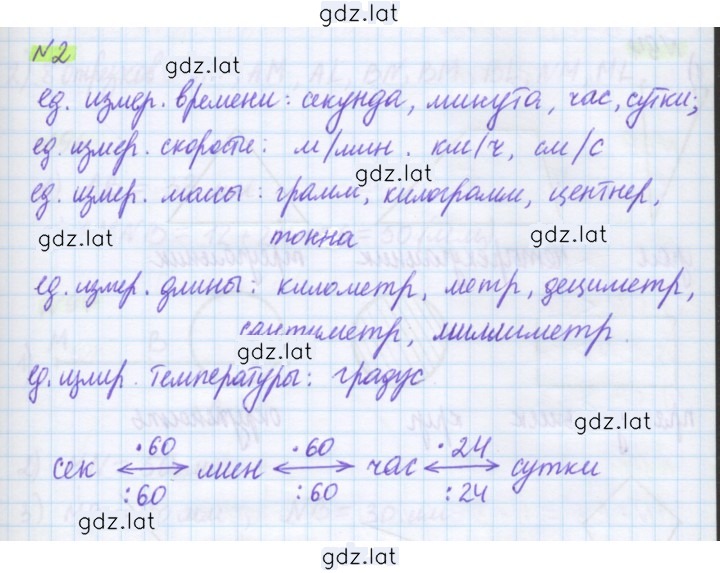 gdz.lat
№2
gdz.lat
ед. измер. времени: секунда, минута, час, сутки;
ед. измер. скорости: м/мин. км/ч, см/с
gdz.lat
ед. измер. массы: грамм, килограмм, центнер,
gdz.lat тонна gdz.lat
ед. измер. длины: километр, метр, дециметр,
сантиметр, миллиметр.
gdz.lat
ед. измир. температуры: градус
gdz.lat
·60 ·60 ·24
сек ⟷ мин ⟷ час ⟷ сутки
:60 :60 :24
gdz.lat
gdz.lat